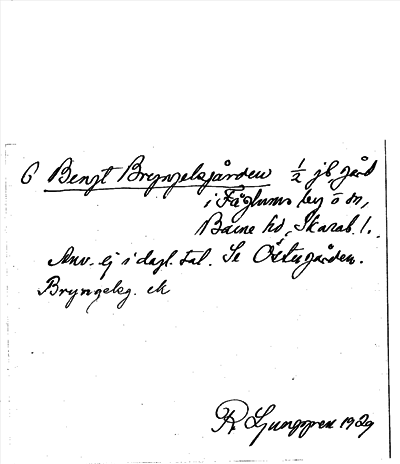 6 Bengt Bryngelsgården 1/2 jb, gård
i Fåglums by o sn,
Barne hd, Skarab. l.
Anv. ej i dagl. tal. Se Östergården.
Bryngelsg. ek
R Ljunggren 1929